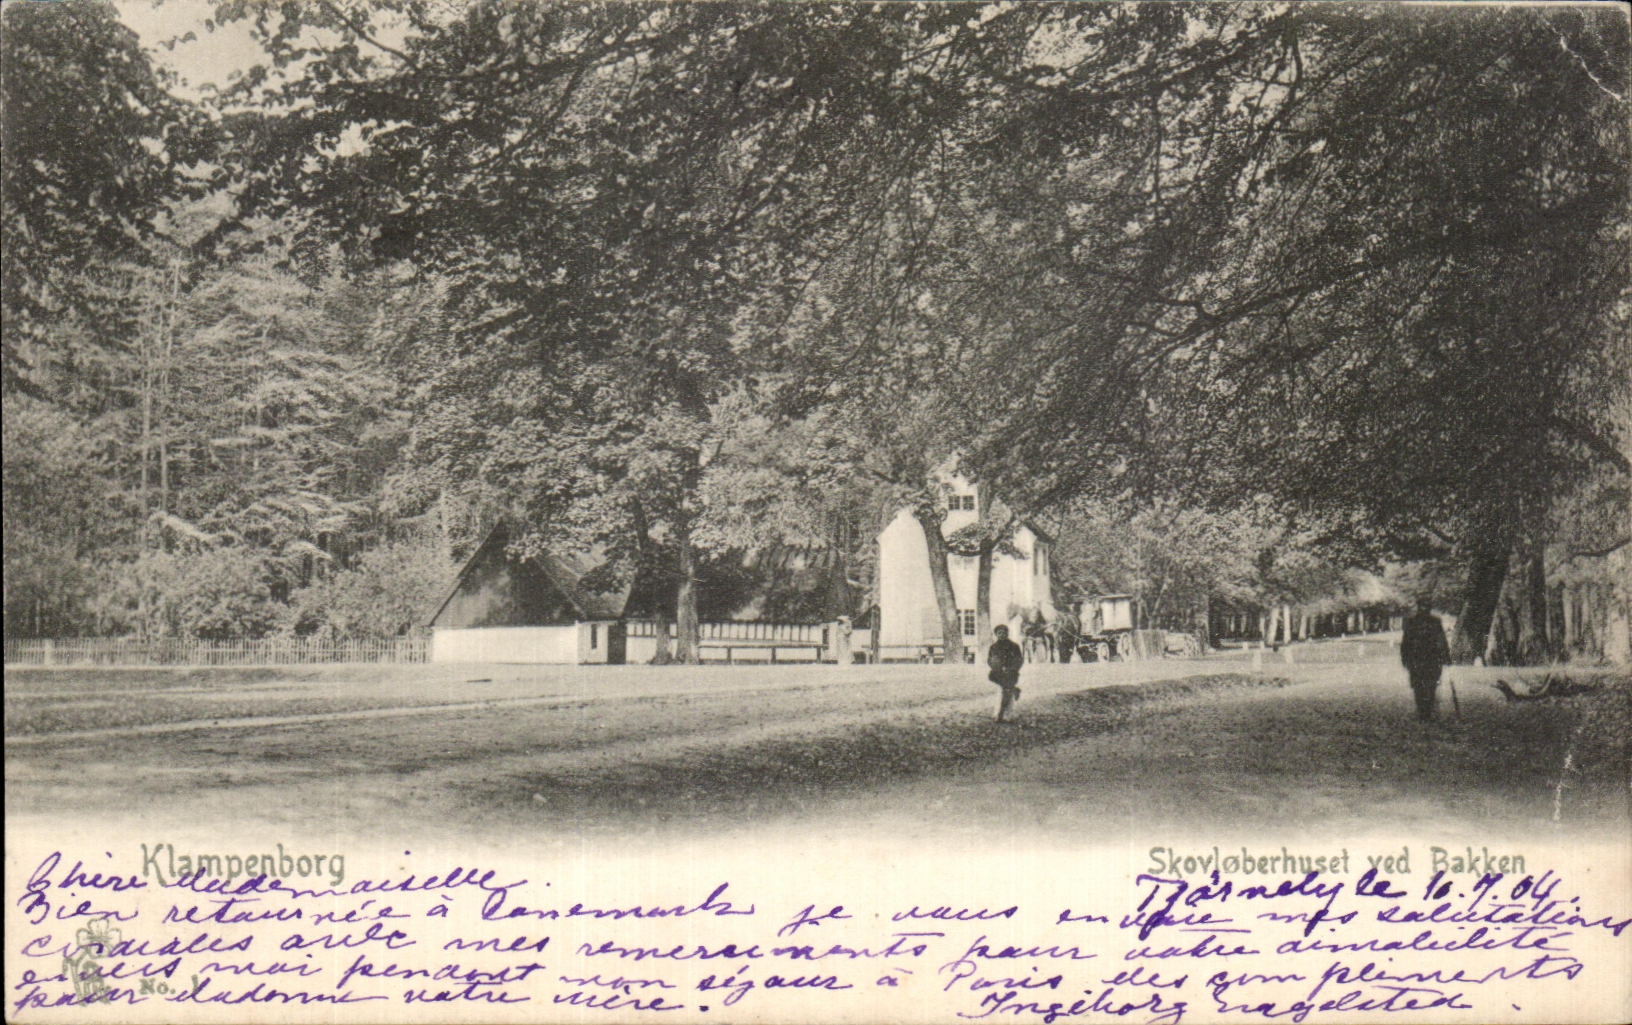 Klampenborg
Skovløberhuset ved Bakken
Chère Mademoiselle
Tjörnelyle 10.7.04.
Bien retournée à Danemark je vous envoie mes salutations
cordiales avec mes remerciments pour votre aimabilité
envers moi pendant mon séjour à Paris des compliments
pour Madame votre mère.
Ingeborg Engelsted.
No. 1